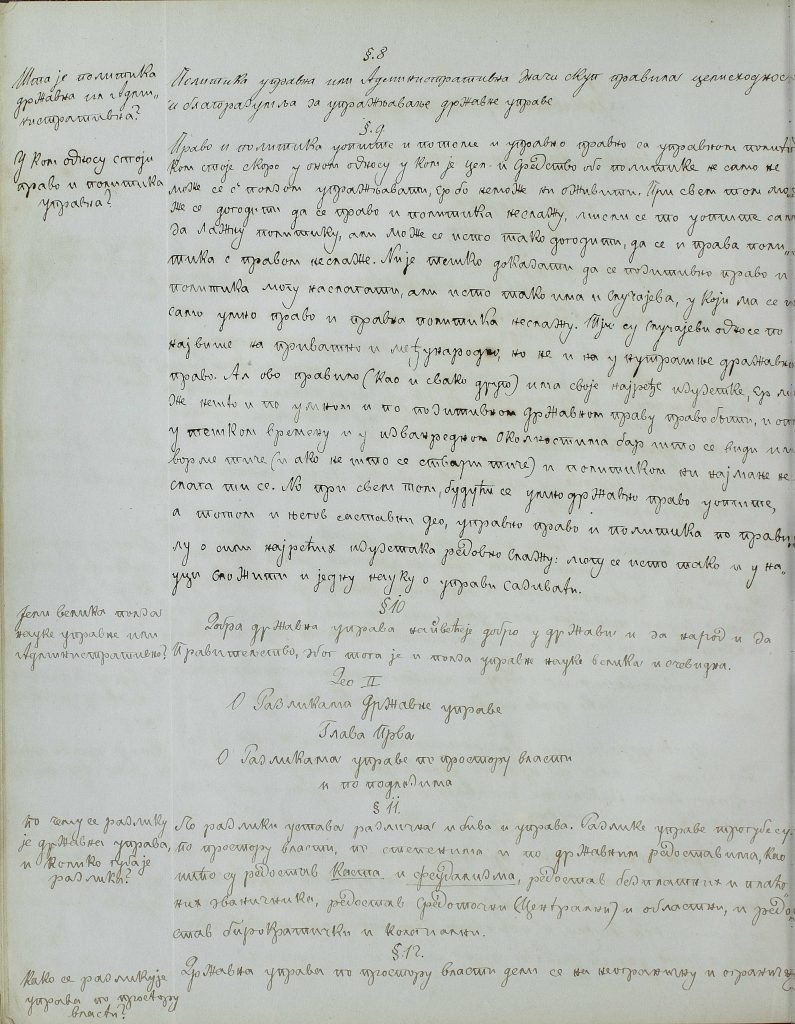 §.8
Шта је политика
државна или админи-
нистративна?
Политика управна или Административна значи скуп правила целисходности
и благоразумља за упражњавање државне управе
§.9
У ком односу стоји
право и политика
управна?
Право и политика уопште и потоме и управно право са управном полити
ком стоје скоро у оном односу у ком је цел и средство обо политике не само не
може се с ползом упражњавати, ер бо неможе ни оживити. При свем том мо
же се догодити да се право и политика неслажу, мисли се то уопште само
за лажну политику, али може се исто тако догодити, да се и права поли-
тика с правом неслаже. Није тешко доказати да се позитивно право и
политика могу неслагати, али исто тако има и случајева, у који ма се и
само умно право и права политика неслажу. Ти су случајеви односе по
највише на приватно и међународно, но не и на унутрашње државно
право. Ал ово правило (као и свако друго) има своје најређе изузетке, ер мо
же нешто и по умном и по позитивном државном праву право бити, и опет
у тешком времену и у изванредном околностима бар што се види и
ворме тиче (и ако не што се ствари тиче) и политиком ни најмање не
слага ти се. Но при свем том, будући се умно државно право уопште,
а потом и његов саставни део, управно право и политика по прави-
лу о сим најређих изузетака редовно слажу: могу се исто тако и у на-
уци сложити и једну науку о управи сазивати.
§10
Јели велика полза
науке управне или
Административно?
Добра државна управа најцветније добро у држави и за народ и за
Правителство, због тога је и полза управне науке велика и очевидна.
Део II
О Разликама Државне управе
Глава Прва
О Разликама управе по простору власти
и по поделима
§ 11.
По чему се разлику
је државна управа,
и колико губа је
разлика?
По разлики устава различна и бива и управа. Разлике управе трогубе су:
по простору власти, по степенима и по државним редоставима, као
што су редостав Каста и феудализма, редостав безплатних и плаће
них званичника, редостав Средоточни (Централни) и областни, и редо
став бирократички и колегиални.
§.12.
Како се разликује
управа по простору
власти?
Државна управа по простору власти дели се на неограничну и огранич